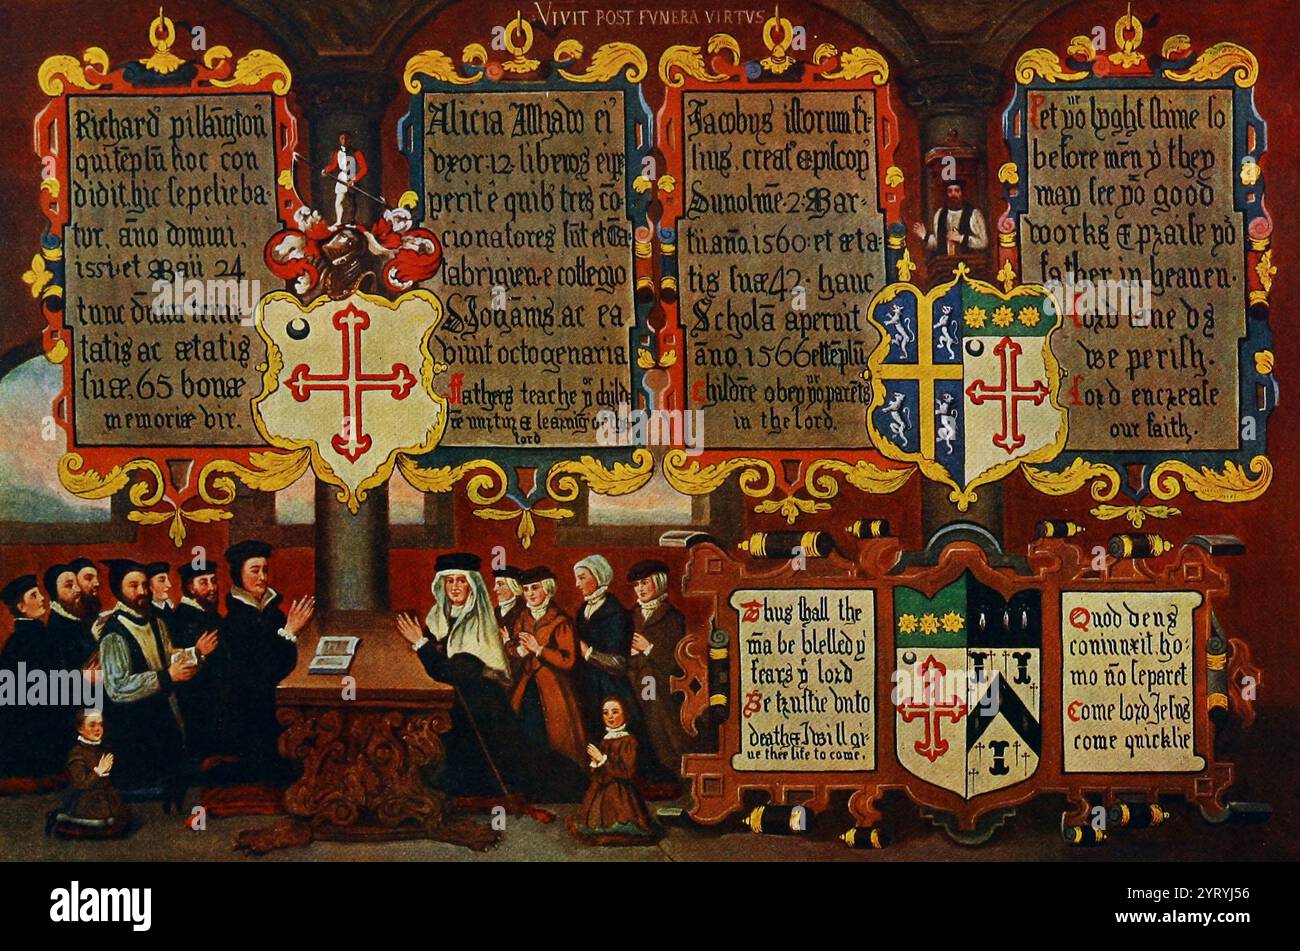 VIVIT POST FVNERA VIRTVS
Richard pilkington
qui templū hoc con
didit, hic sepelieba-
tur, año domini,
issi et Maii 24
tunc
tatis ac ætatis
suæ, 65 bonæ
memoriæ vir.
Alicia Asshaw ei'
vxor: 12 liberos
perit ē quib' tres cō-
cionatores sūt et Cā
tabrigien, e collegio
S. Johānis ac ea
vivit octogenaria
Fathers teache yor child-
rē nurtur & learning of the
lord
Jacobus istorum fi-
lius, creat' Episcop'
Dunolmē. 2. Mar-
tii año. 1560: et æta-
tis suæ 42. hanc
Scholā aperuit
año, 1566 et templū
Childrē obey yor parēts
in the lord.
Let yor lyght shine so
before mēn yt they
may see yor good
works & praise yor
father in heaven.
Lord
we perish.
Lord encrease
our faith.
Thus shall the
mā be blessed yt
fears ye lord
Be trustie unto
death & I will gi-
ve thee life to come.
Quod deus
coniunxit ho-
mo ño separet
Come lord Jesus
come quicklie
alamy
alamy
Image ID: 2YRYYJ56
www.alamy.com